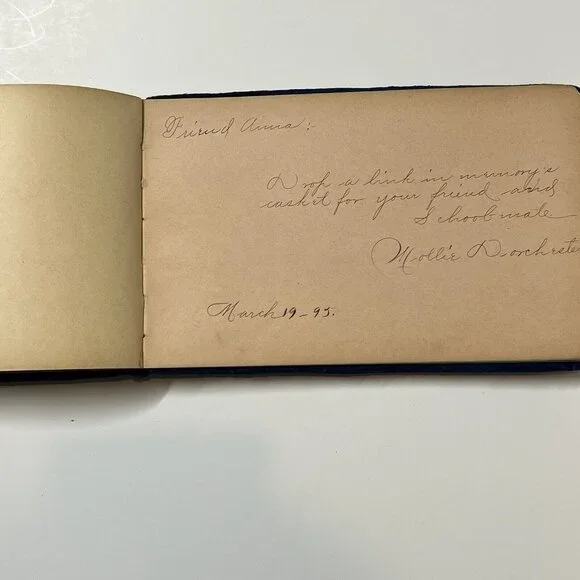 Friend Anna:
Drop a link in memory's
casket for your friend and
Schoolmate
Mollie Dorchester
March 19-95.